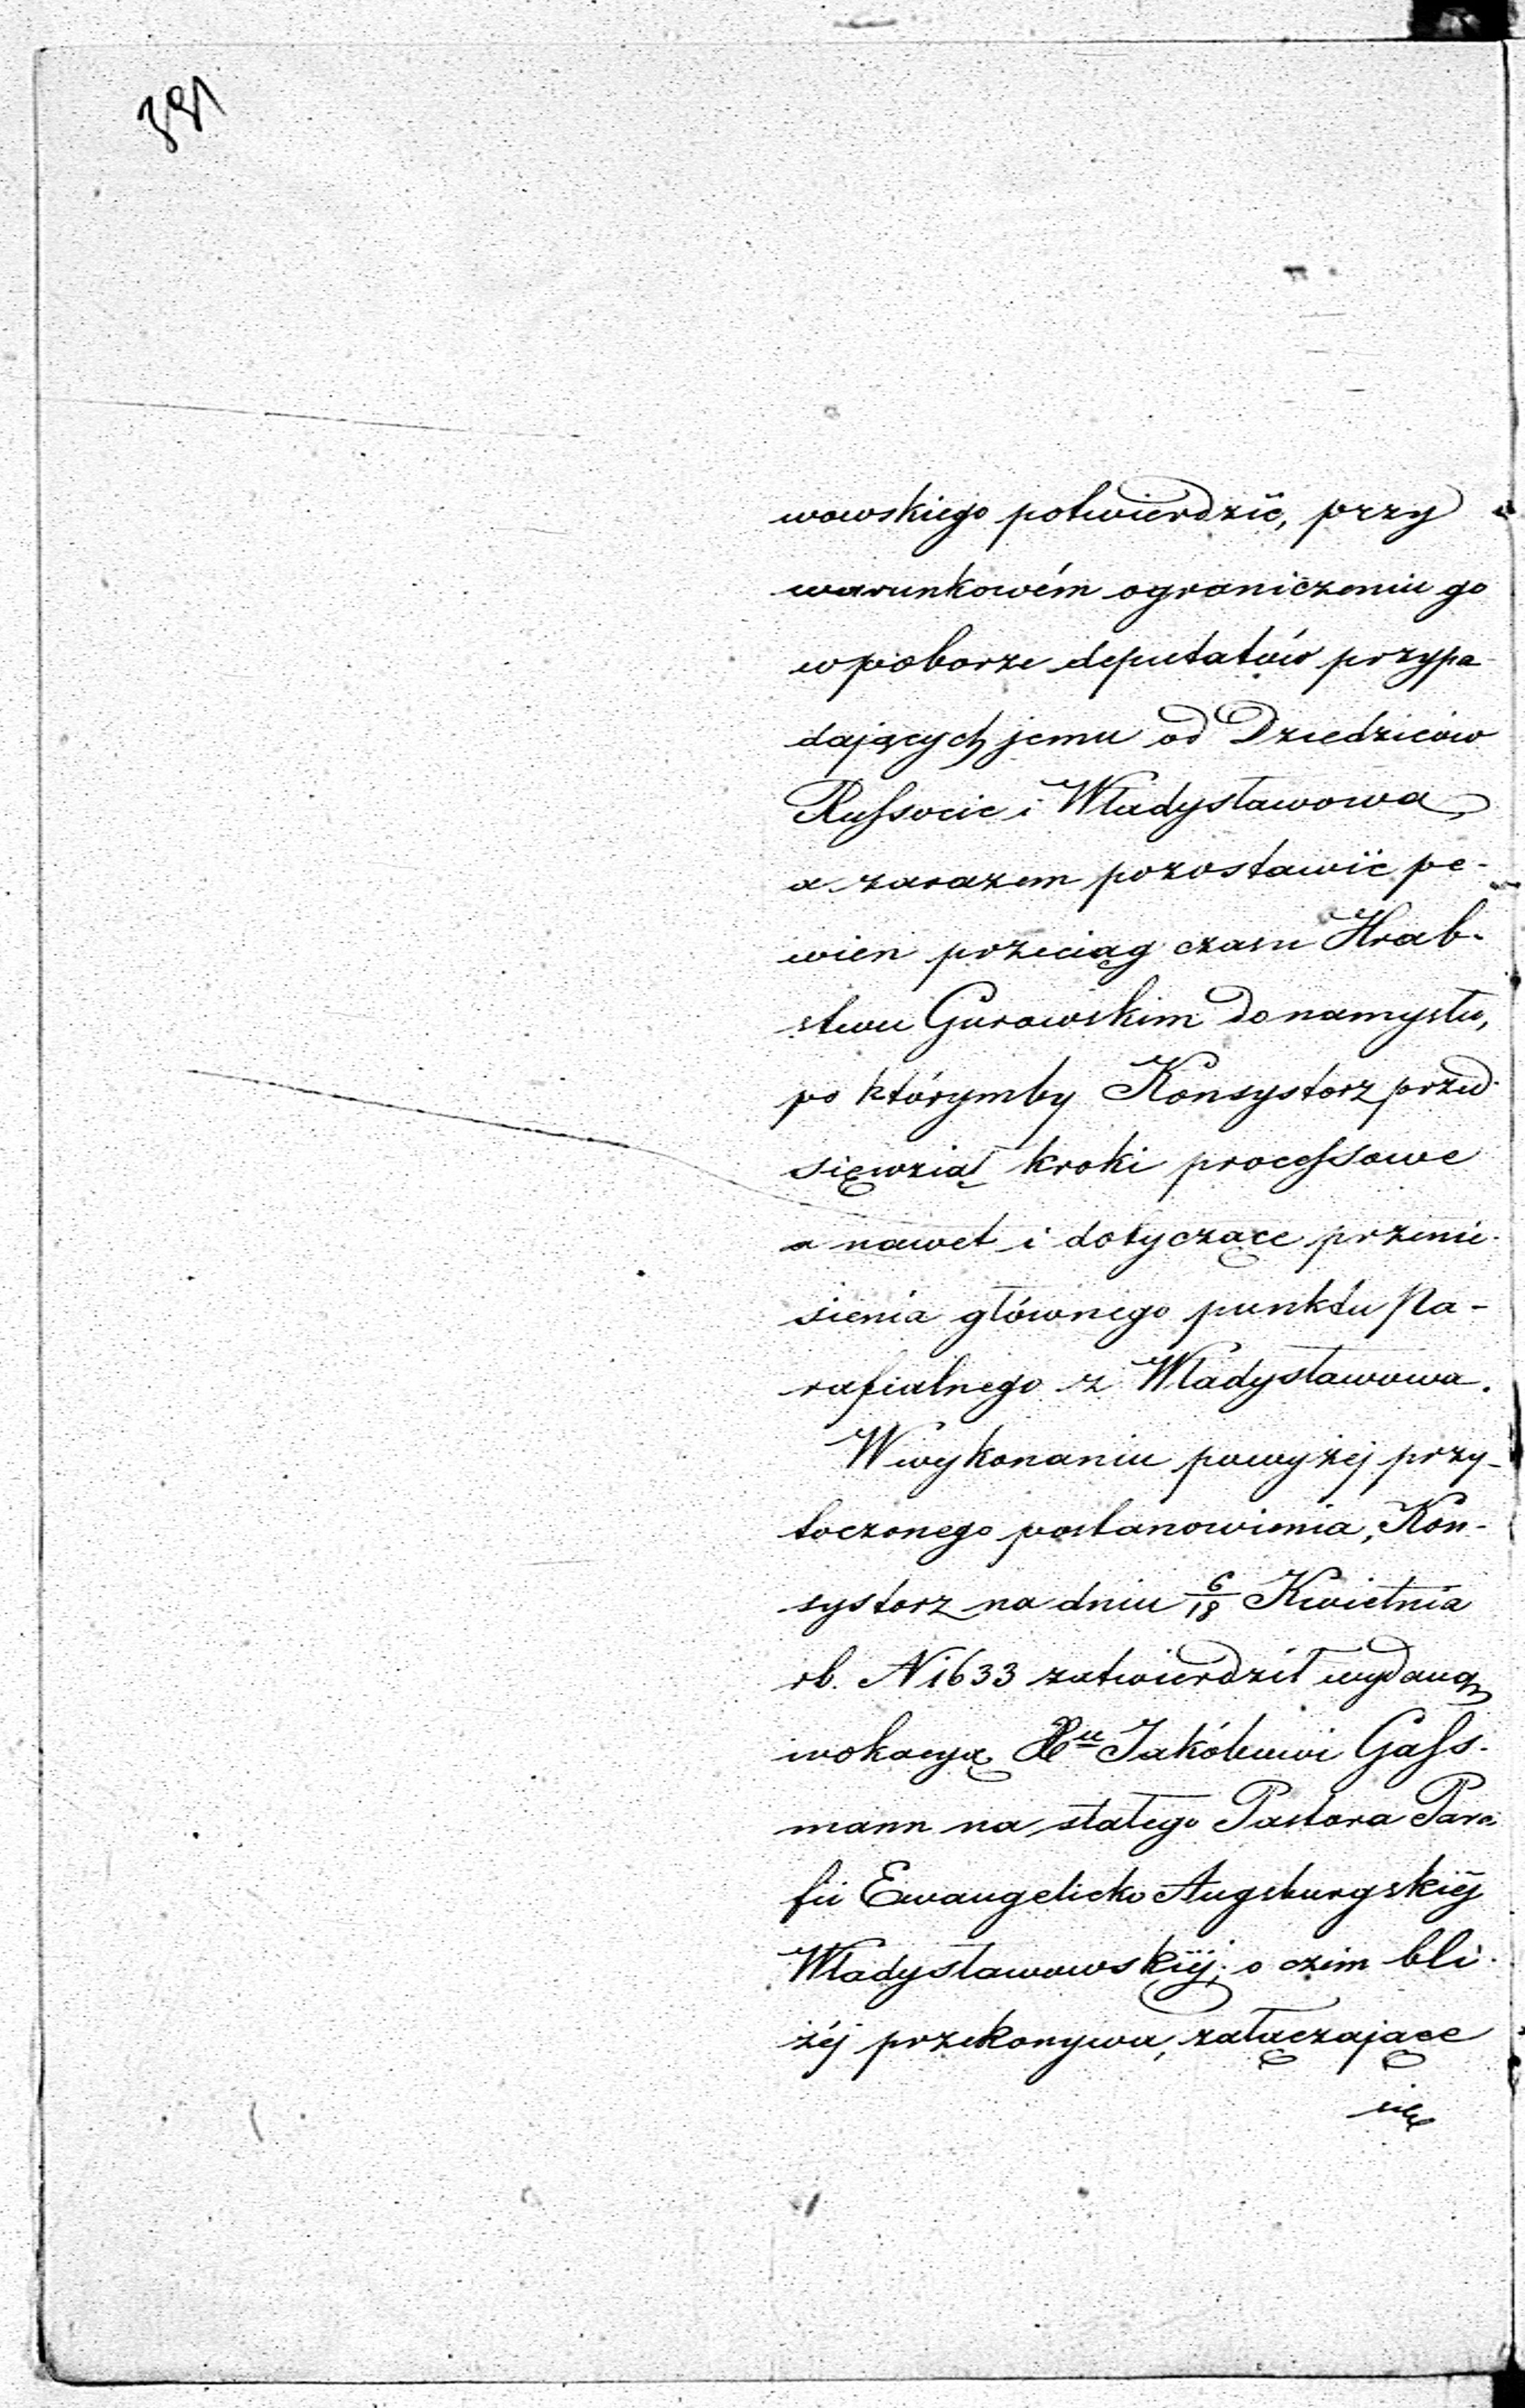 391
wowskiego potwierdzić, przy
warunkowém ograniczeniu go
w poborze deputatów przypa-
dających jemu od Dziedziców
Russocic i Władysławowa,
a zarazem pozostawić pe-
wien przeciąg czasu Hrab-
stwu Gurowskim do namysłu,
po którymby Konsystorz przed-
sięwziął kroki processowe
a nawet i dotyczące przenie-
sienia głównego punktu Pa-
rafialnego z Władysławowa.
W wykonaniu powyżej przy-
toczonego postanowienia, Kon-
systorz na dniu 6/18 Kwietnia
rb. N 1633 zatwierdził wydaną
wokacyą Jakóbowi Gass-
mann na stałego Pastora Para-
fii Ewangelicko Augsburgskiéj
Władysławowskiéj; o czém bli-
żéj przekonywa, załączające
się